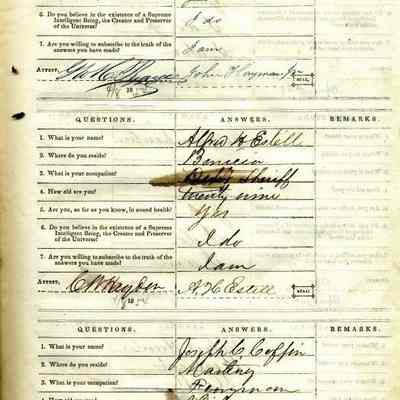 6. Do you believe in the existence of a Supreme
Intelligent Being, the Creator and Preserver
of the Universe? I do
7. Are you willing to subscribe to the truth of the
answers you have made? I am
ATTEST, 18 SEAL
QUESTIONS. ANSWERS. REMARKS.
1. What is your name? Alfred H Estell
2. Where do you reside? Benicia
3. What is your occupation? Sheriff
4. How old are you? twenty nine
5. Are you, so far as you know, in sound health? Yes
6. Do you believe in the existence of a Supreme
Intelligent Being, the Creator and Preserver
of the Universe? I do
7. Are you willing to subscribe to the truth of the
answers you have made? I am
ATTEST, 18 A H Estell SEAL
QUESTIONS. ANSWERS. REMARKS.
1. What is your name? Joseph C. Coffin
2. Where do you reside? Martinez
3. What is your occupation?
4. How old are you?